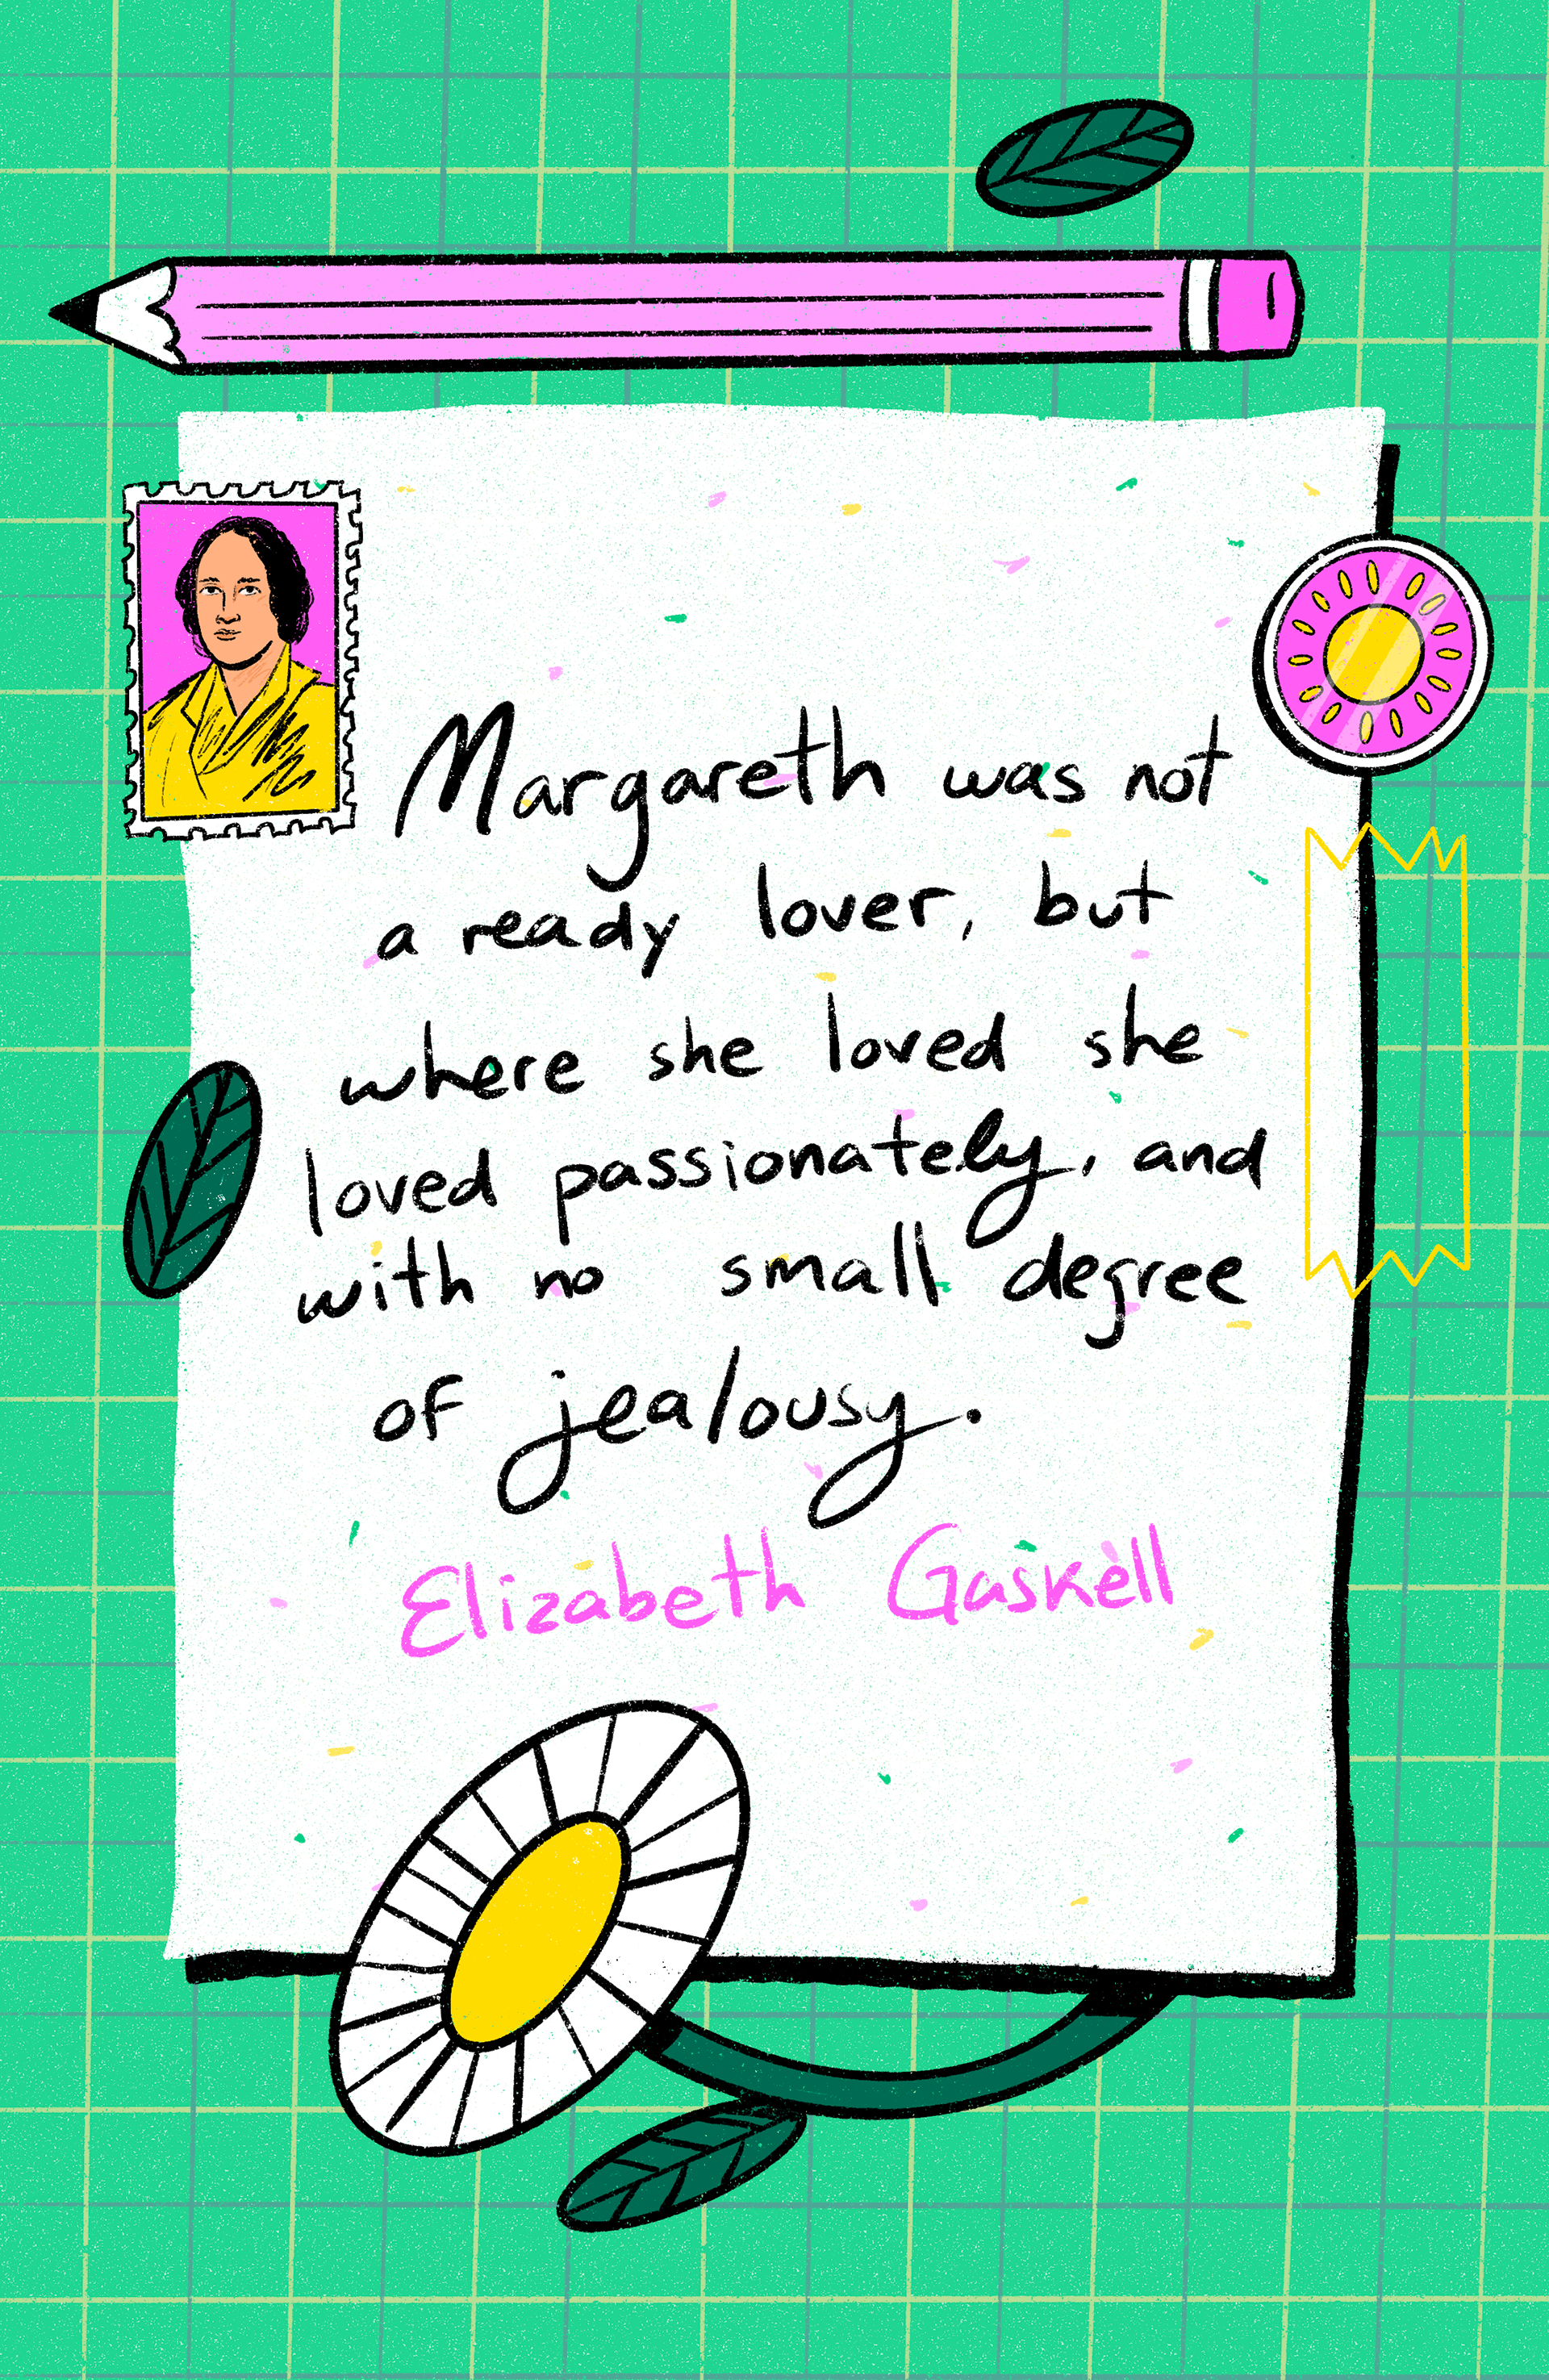 Margareth was not
a ready lover, but
where she loved she
loved passionately, and
with no small degree
of jealousy.
Elizabeth Gaskell